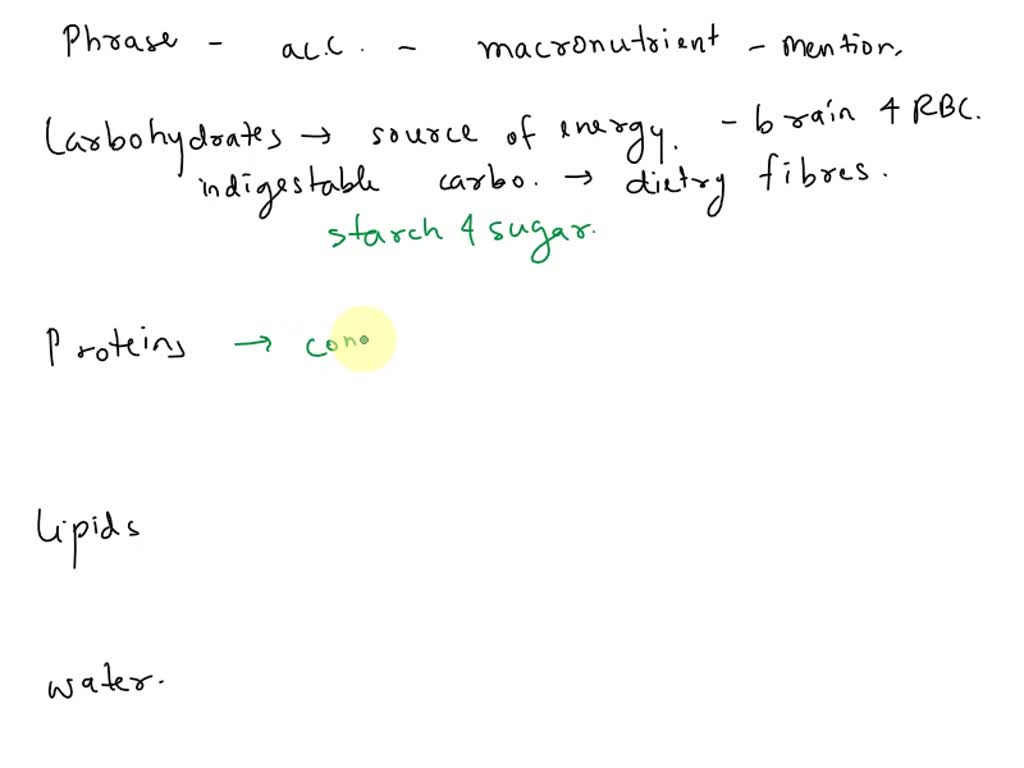 Phrase - acc. - macronutrient - mention.
Carbohydrates → source of energy. - brain & RBC.
indigestable carbo. → dietry fibres.
starch & sugar.
Proteins → con
Lipids
water.